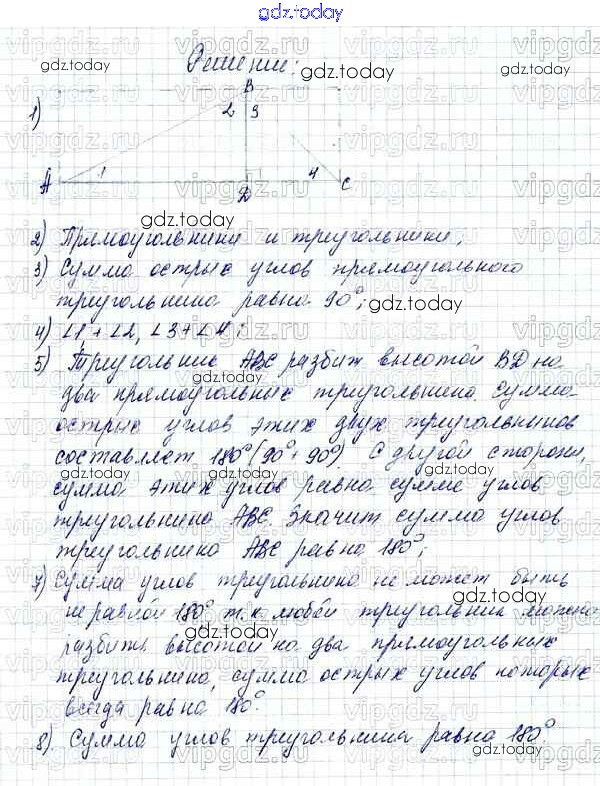 gdz.today
Решение:
1)
B
2 3
A 1 D 4 C
2) Прямоугольники и треугольники;
3) Сумма острых углов прямоугольного
треугольника равна 90°;
4) ∠1+∠2, ∠3+∠4;
5) Треугольник ABC разбит высотой BD на
два прямоугольных треугольника. Сумма
острых углов этих двух треугольников
составляет 180° (90°+90°). С другой стороны,
сумма этих углов равна сумме углов
треугольника ABC. Значит сумма углов
треугольника ABC равна 180°;
7) Сумма углов треугольника не может быть
не равной 180° т.к. любой треугольник можно
разбить высотой на два прямоугольных
треугольника, сумма острых углов которых
всегда равна 180°.
8). Сумма углов треугольника равна 180°.